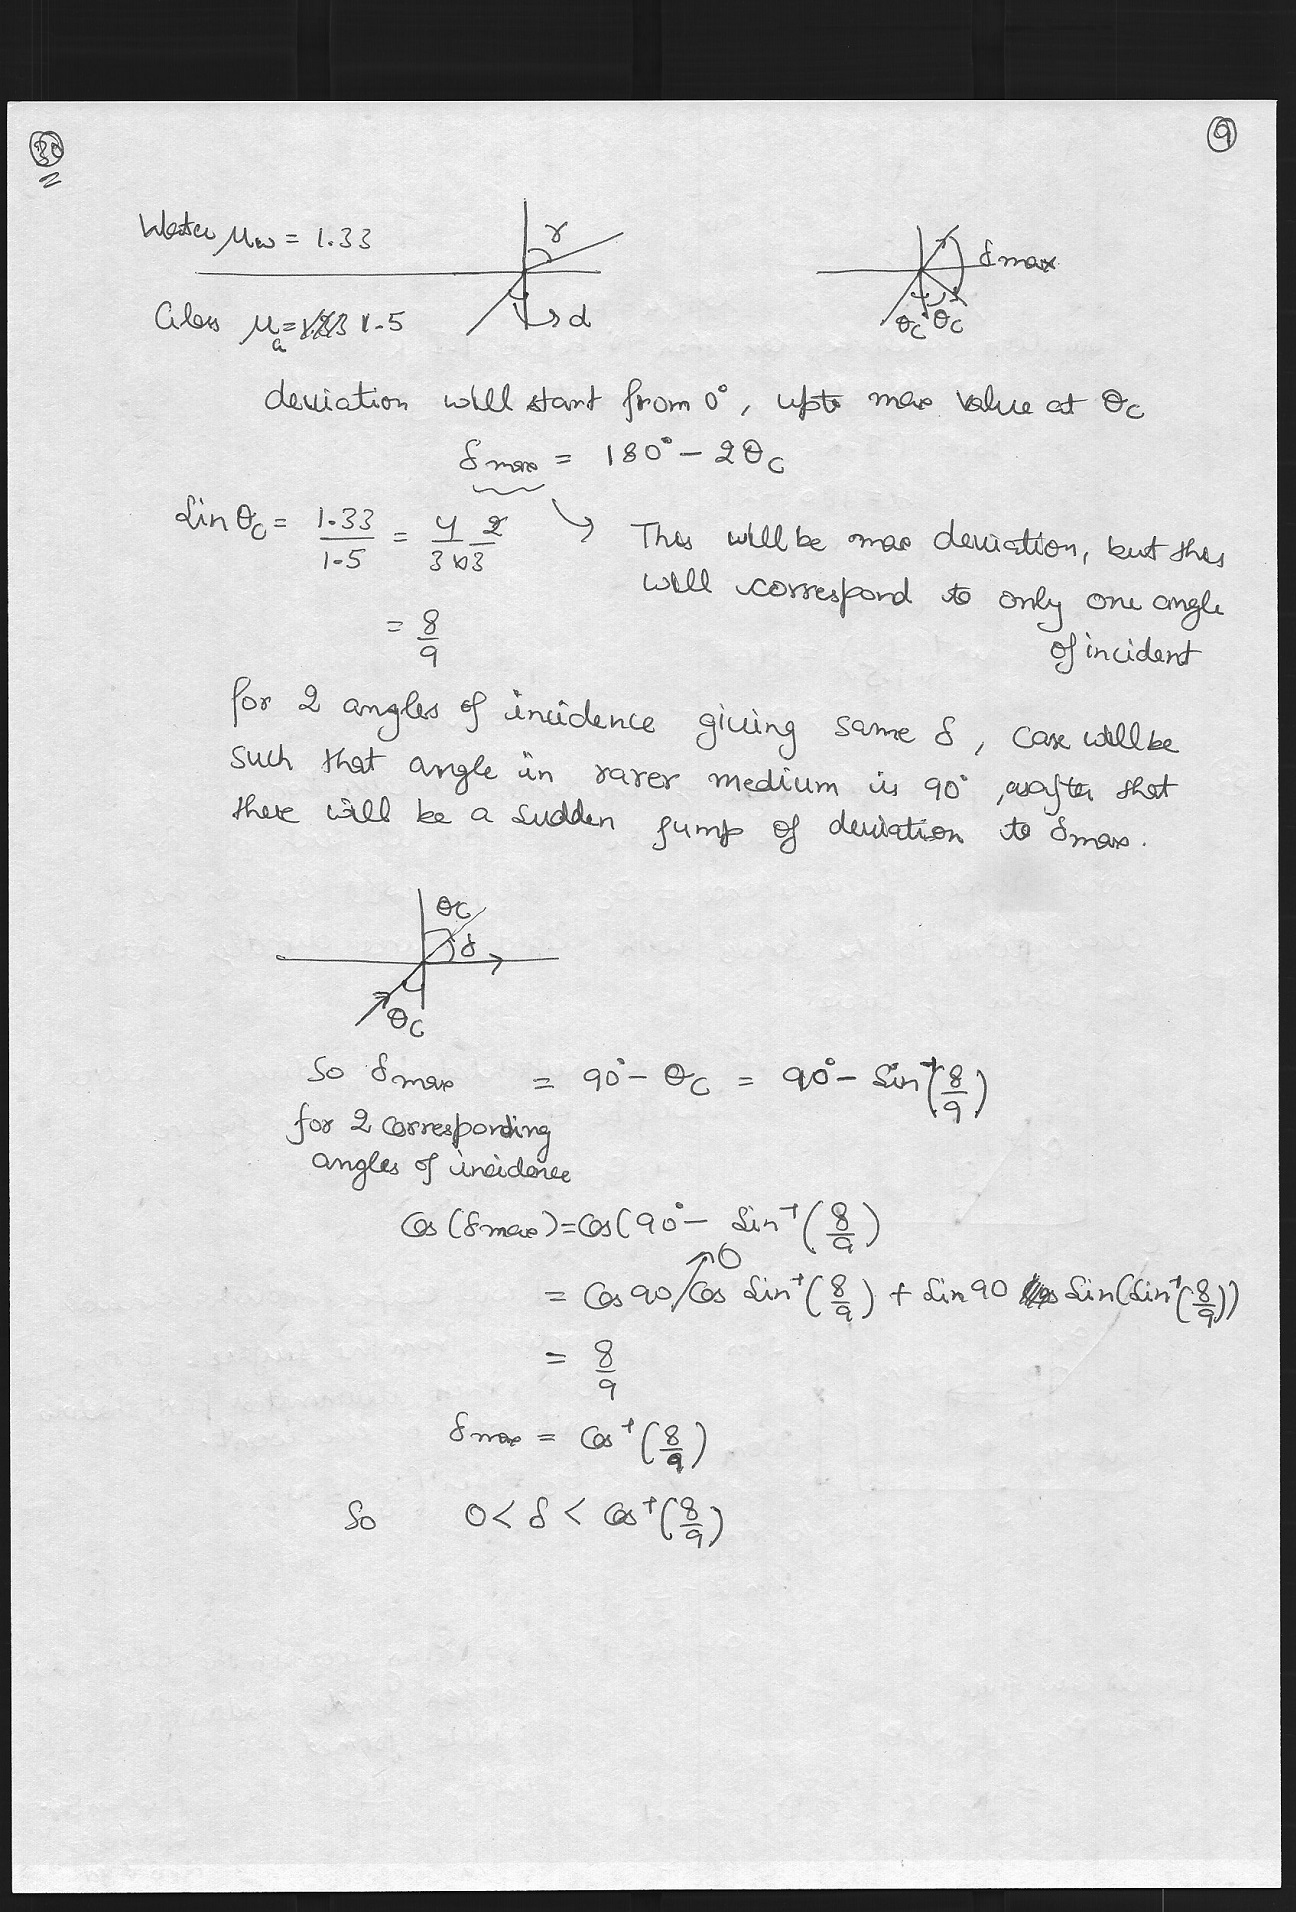 30
9
Water μw = 1.33
r
δ max
Glass μa = 1.5
d
θc θc
deviation will start from 0°, upto max value at θc
δ max = 180° - 2θc
Sin θc = 1.33/1.5 = 4/3 x 2/3
= 8/9
This will be max deviation, but this
will correspond to only one angle
of incident
for 2 angles of incidence giving same δ, case will be
such that angle in rarer medium is 90°, as after that
there will be a sudden jump of deviation to δmax.
θc
δ
θc
So δmax = 90° - θc = 90° - Sin⁻¹(8/9)
for 2 corresponding
angles of incidence
Cos (δmax) = Cos (90° - Sin⁻¹ (8/9)
0
= Cos 90 Cos Sin⁻¹(8/9) + Sin 90 Sin(Sin⁻¹(8/9))
= 8/9
δmax = Cos⁻¹ (8/9)
So 0 < δ < Cos⁻¹(8/9)